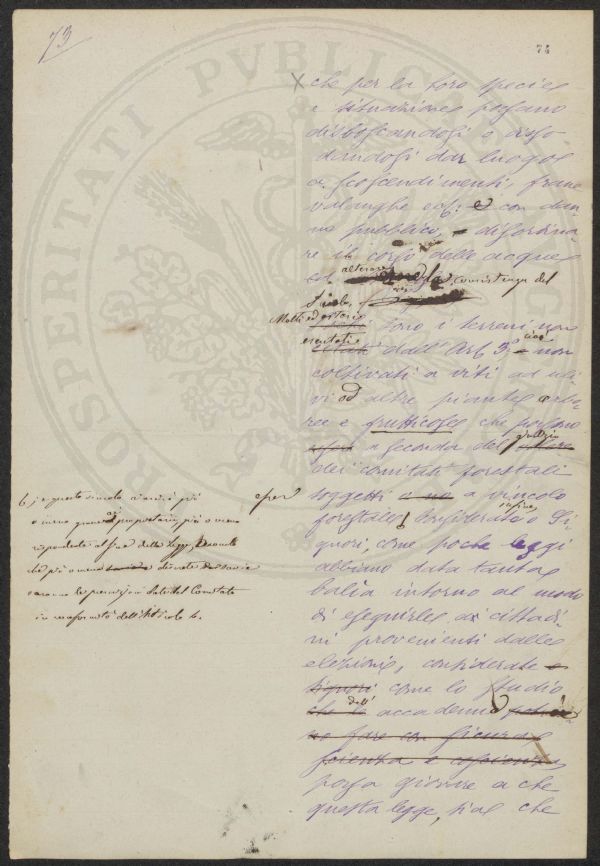 73
74
che per la loro specie
e situazione possano
disboscandosi o disso-
dandosi dar luogo
a scoscendimenti, frane
valanghe ecc: e con dan-
no pubblico, disordina-
re il corso delle acque
alterare la consistenza del
suolo,
Molti ed estesi sono i terreni non
esentati dall' Art 3º cioè non
coltivati a viti ad uli-
vi od altre piante arbo-
ree e fruttifere che possono
a seconda del giudizio
dei comitati forestali
esser soggetti a vincolo
forestale, considerate infine o Si-
gnori, come poche leggi
abbiano data tanta
balìa intorno al modo
di eseguirle ai cittadi-
ni provenienti dalle
elezioni, considerate
signori come lo studio
dell' accademia
no fare con sicura
scienza e coscienza
possa giovare a che
questa legge, sia che
e questo vincolo sarà più
o meno grave ai proprietari, più o meno
rispondente al fine della Legge, secondo
che più o meno
saranno le prescrizioni date dal Comitato
in conformità dell'Articolo 4.
ROSPERITATI PVBLICAE